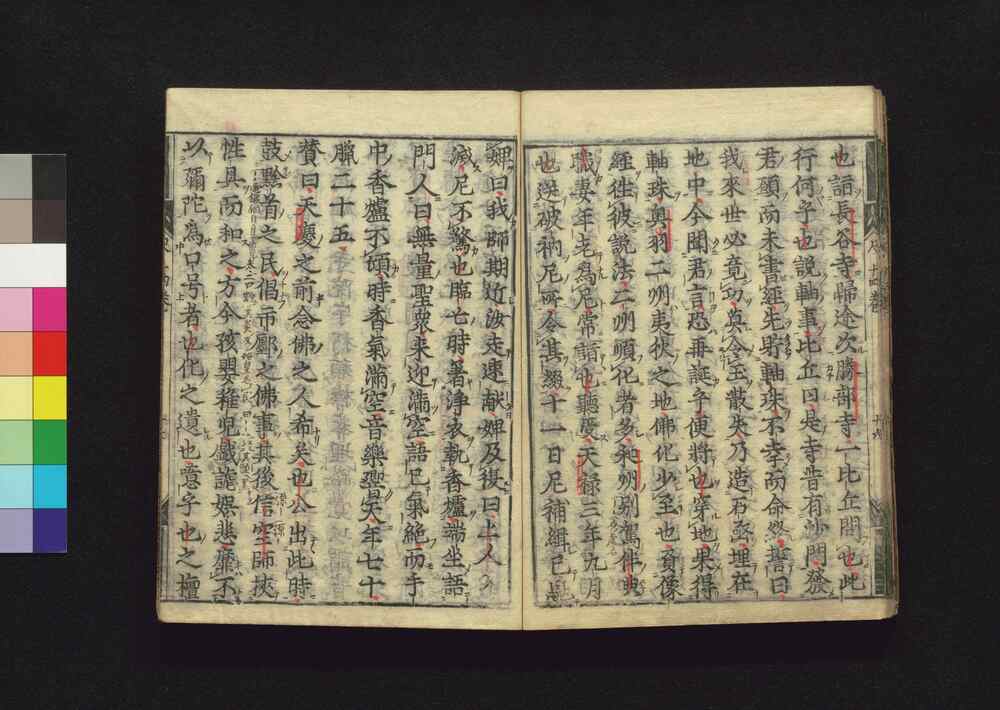 也詣長谷寺歸途次勝部寺一比丘問也此
行何乎也說軸事比丘曰是寺昔有沙門發
君願而未書經先貯軸珠不幸而命終誓曰
我來世必竟功真今玉散失乃造石函埋在
地中今聞君言恐再誕乎便將也穿地果得
軸珠奧羽二州夷狄之地佛化少至也負像
經徃彼說法二州順化者多和州剜駕伴典
職妻年老為尼常詣也聽受天祿三年九月
也送破衲尼所令其綴十一日尼補緝已與
婢曰我師期近汝走速献婢及後曰上人入
滅尼不驚也臨亡時著淨衣執香爐端坐語
門人曰無量聖衆來迎滿空語已氣絕而手
中香爐不傾時香氣滿空音樂聖天年七十
臘二十五
贊曰天慶之前念佛之人希矣也公出此時
鼓黔首之民倡市鄽之佛事其後信空師挾
性具而和之方今孩嬰稚兒戲謔娛悲靡不
以彌陀為口号者也化之遺也意乎也之壇